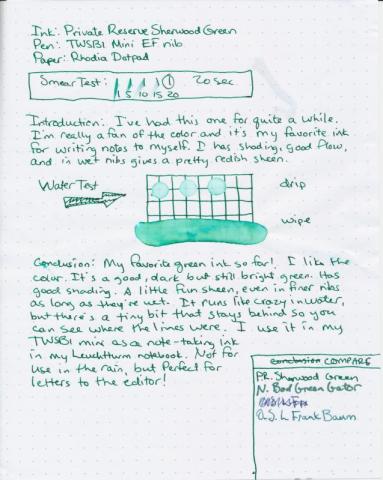 Ink: Private Reserve Sherwood Green
Pen: TWSBI Mini EF nib
Paper: Rhodia Dotpad
Smear Test: 1 5 10 15 20 20 sec
Introduction: I've had this one for quite a while.
I'm really a fan of the color and it's my favorite ink
for writing notes to myself. I has shading, good flow,
and in wet nibs gives a pretty redish sheen.
Water Test
drip
wipe
Conclusion: My favorite green ink so far! I like the
color. It's a good, dark but still bright green. Has
good shading. A little fun sheen, even in finer nibs
as long as they're wet. It runs like crazy in water,
but there's a tiny bit that stays behind so you
can see where the lines were. I use it in my
TWSBI mini as a note-taking ink
in my Leuchtturm notebook. Not for
use in the rain, but Perfect for
letters to the editor!
conclusion COMPARE
P.R. Sherwood Green
N. Bad Green Gator
D.S. L Frank Baum